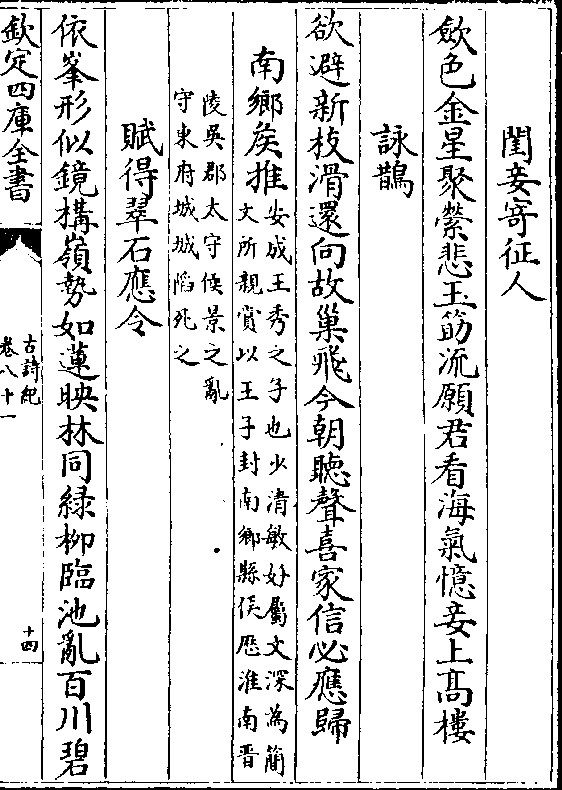 閨妾寄征人
斂色金星聚縈悲玉筯流願君看海氣憶妾上髙樓
詠鵲
欲避新枝滑還向故巢飛今朝聽聲喜家信必應歸
南鄉矦推安成王秀之子也少清敏好屬文深為簡
文所親賞以王子封南鄉縣侯歴淮南晋
陵吳郡太守侯景之亂
守東府城城䧟死之
賦得翠石應令
依峯形似鏡搆嶺勢如蓮映林同緑柳臨池亂百川碧
欽定四庫全書
古詩紀
卷八十一
十四